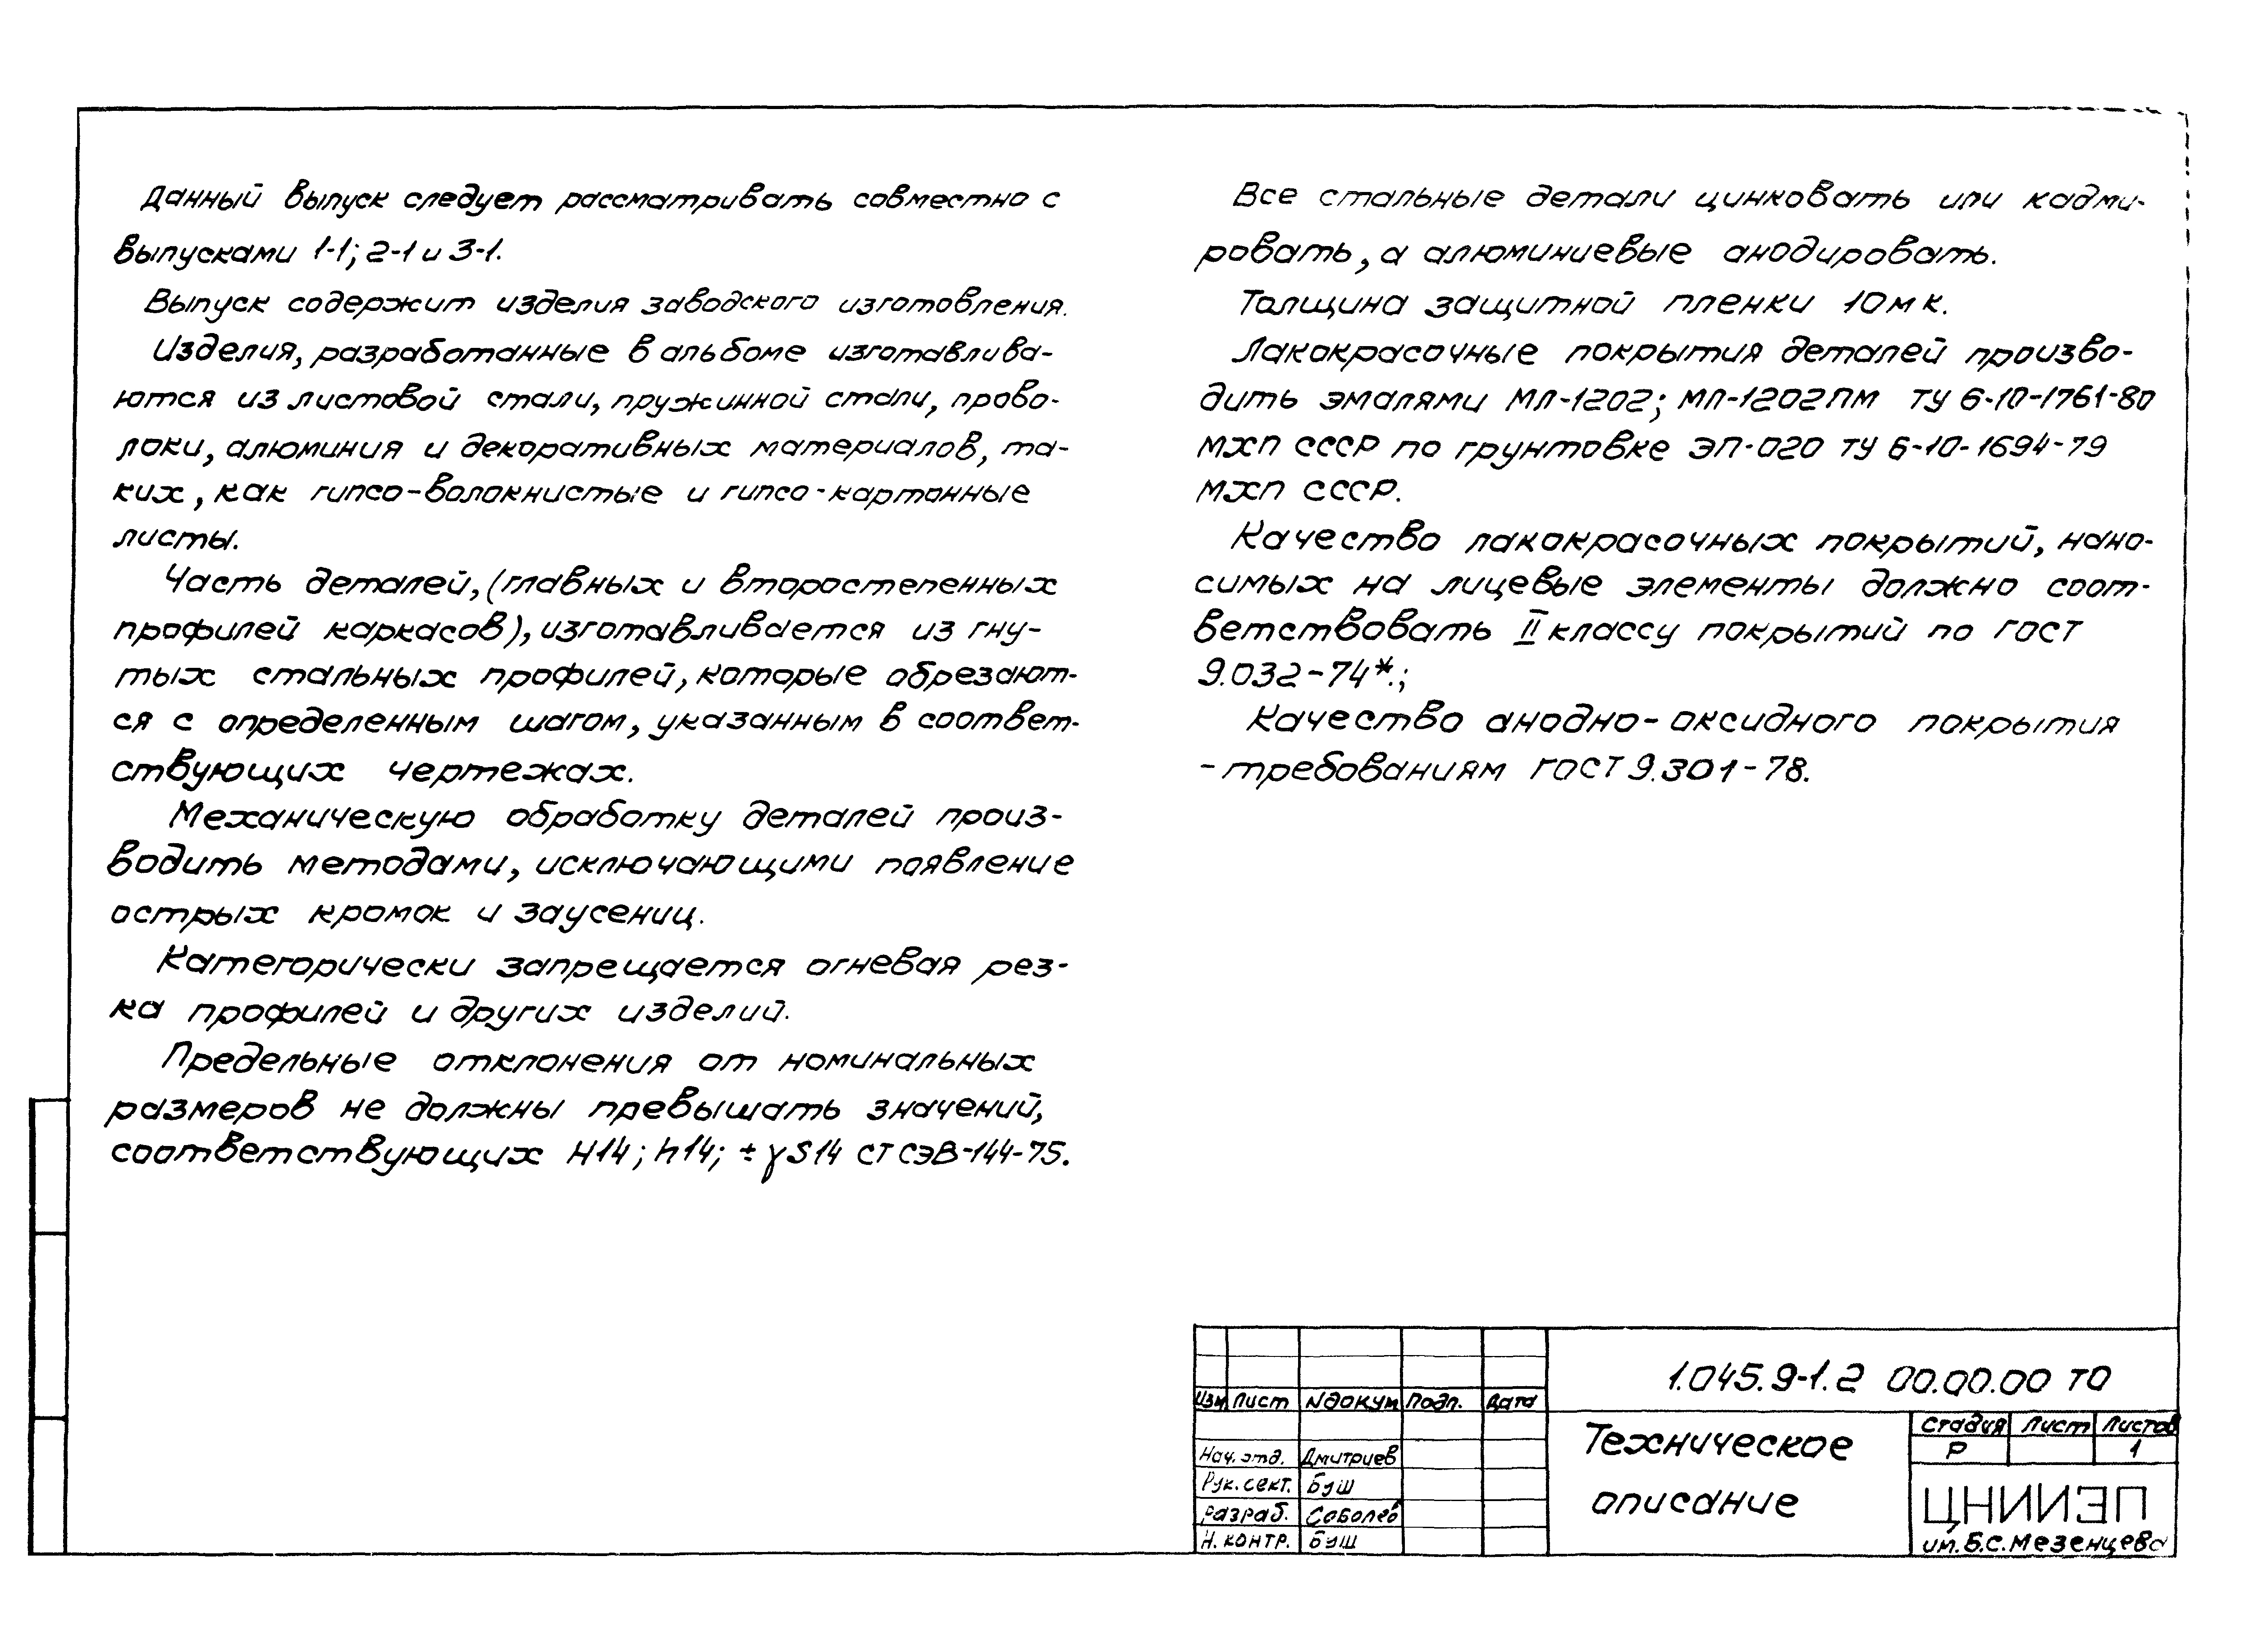 Данный выпуск следует рассматривать совместно с
выпусками 1-1; 2-1 и 3-1.
Выпуск содержит изделия заводского изготовления.
Изделия, разработанные в альбоме изготавлива-
ются из листовой стали, пружинной стали, прово-
локи, алюминия и декоративных материалов, та-
ких, как гипсо-волокнистые и гипсо-картонные
листы.
Часть деталей, (главных и второстепенных
профилей каркасов), изготавливается из гну-
тых стальных профилей, которые обрезают-
ся с определенным шагом, указанным в соответ-
ствующих чертежах.
Механическую обработку деталей произ-
водить методами, исключающими появление
острых кромок и заусениц.
Категорически запрещается огневая рез-
ка профилей и других изделий.
Предельные отклонения от номинальных
размеров не должны превышать значений,
соответствующих H14; h14; ± γS14 СТ СЭВ-144-75.
Все стальные детали цинковать или кадми-
ровать, а алюминиевые анодировать.
Толщина защитной пленки 10мк.
Лакокрасочные покрытия деталей произво-
дить эмалями МЛ-1202; МЛ-1202ПМ ТУ 6-10-1761-80
МХП СССР по грунтовке ЭП-020 ТУ 6-10-1694-79
МХП СССР.
Качество лакокрасочных покрытий, нано-
симых на лицевые элементы должно соот-
ветствовать II классу покрытий по ГОСТ
9.032-74*.;
Качество анодно-оксидного покрытия
- требованиям ГОСТ 9.301-78.
1.045.9-1.2 00.00.00 ТО
Изм Лист Nдокум Подп. Дата
Техническое
описание
Стадия Лист Листов
Р 1
Нач. отд. Дмитриев
Рук. сект. Буш
Разраб. Соболев
Н. контр. Буш
ЦНИИЭП
им. Б.С. Мезенцева